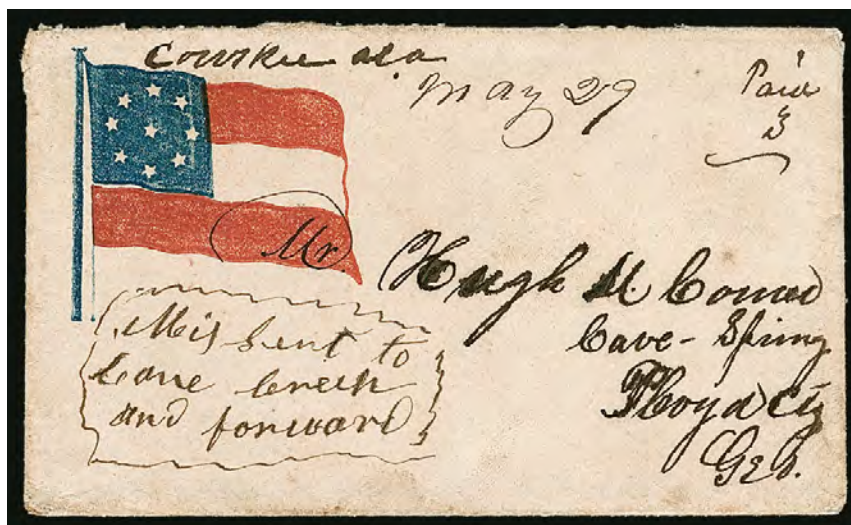 Cowikee ala
May 29
Paid
3
Mr. Hugh M Comer
Cave-Spring
Floyd Cty
Geo.
Mis Sent to
Cane Creek
and forward